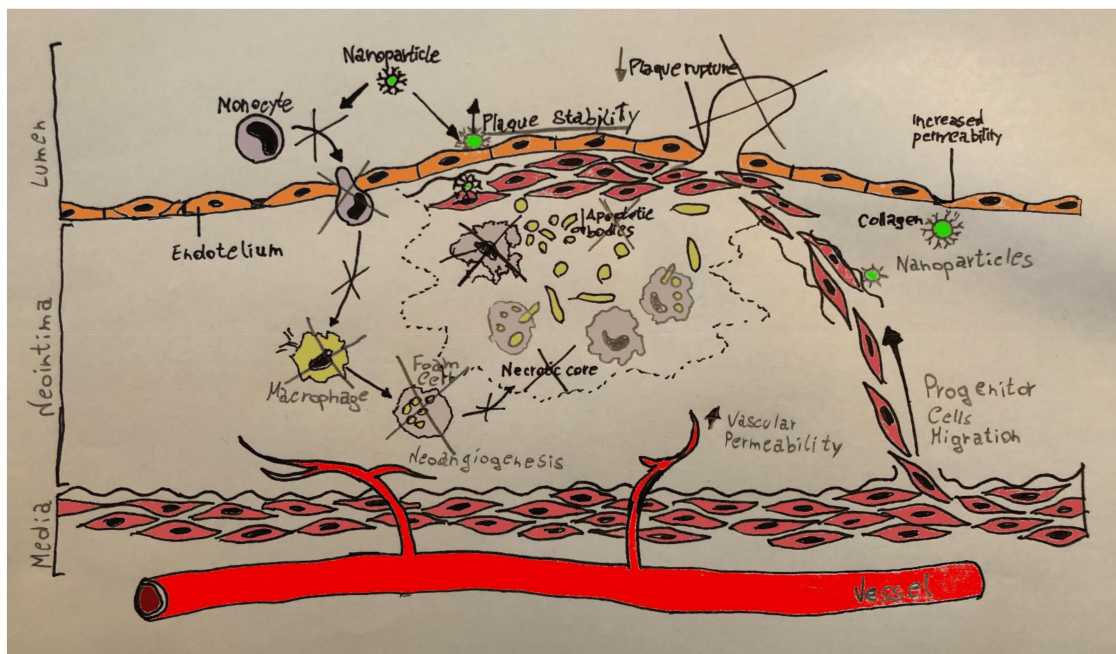 Lumen
Neointima
Media
Nanoparticle
Monocyte
Plaque Stability
Plaque rupture
Increased
permeability
Endotelium
Collagen
Nanoparticles
Apoptotic
bodies
Macrophage
Foam
Cell
Necrotic core
Neoangiogenesis
Vascular
Permeability
Progenitor
Cells
Migration
Vessel